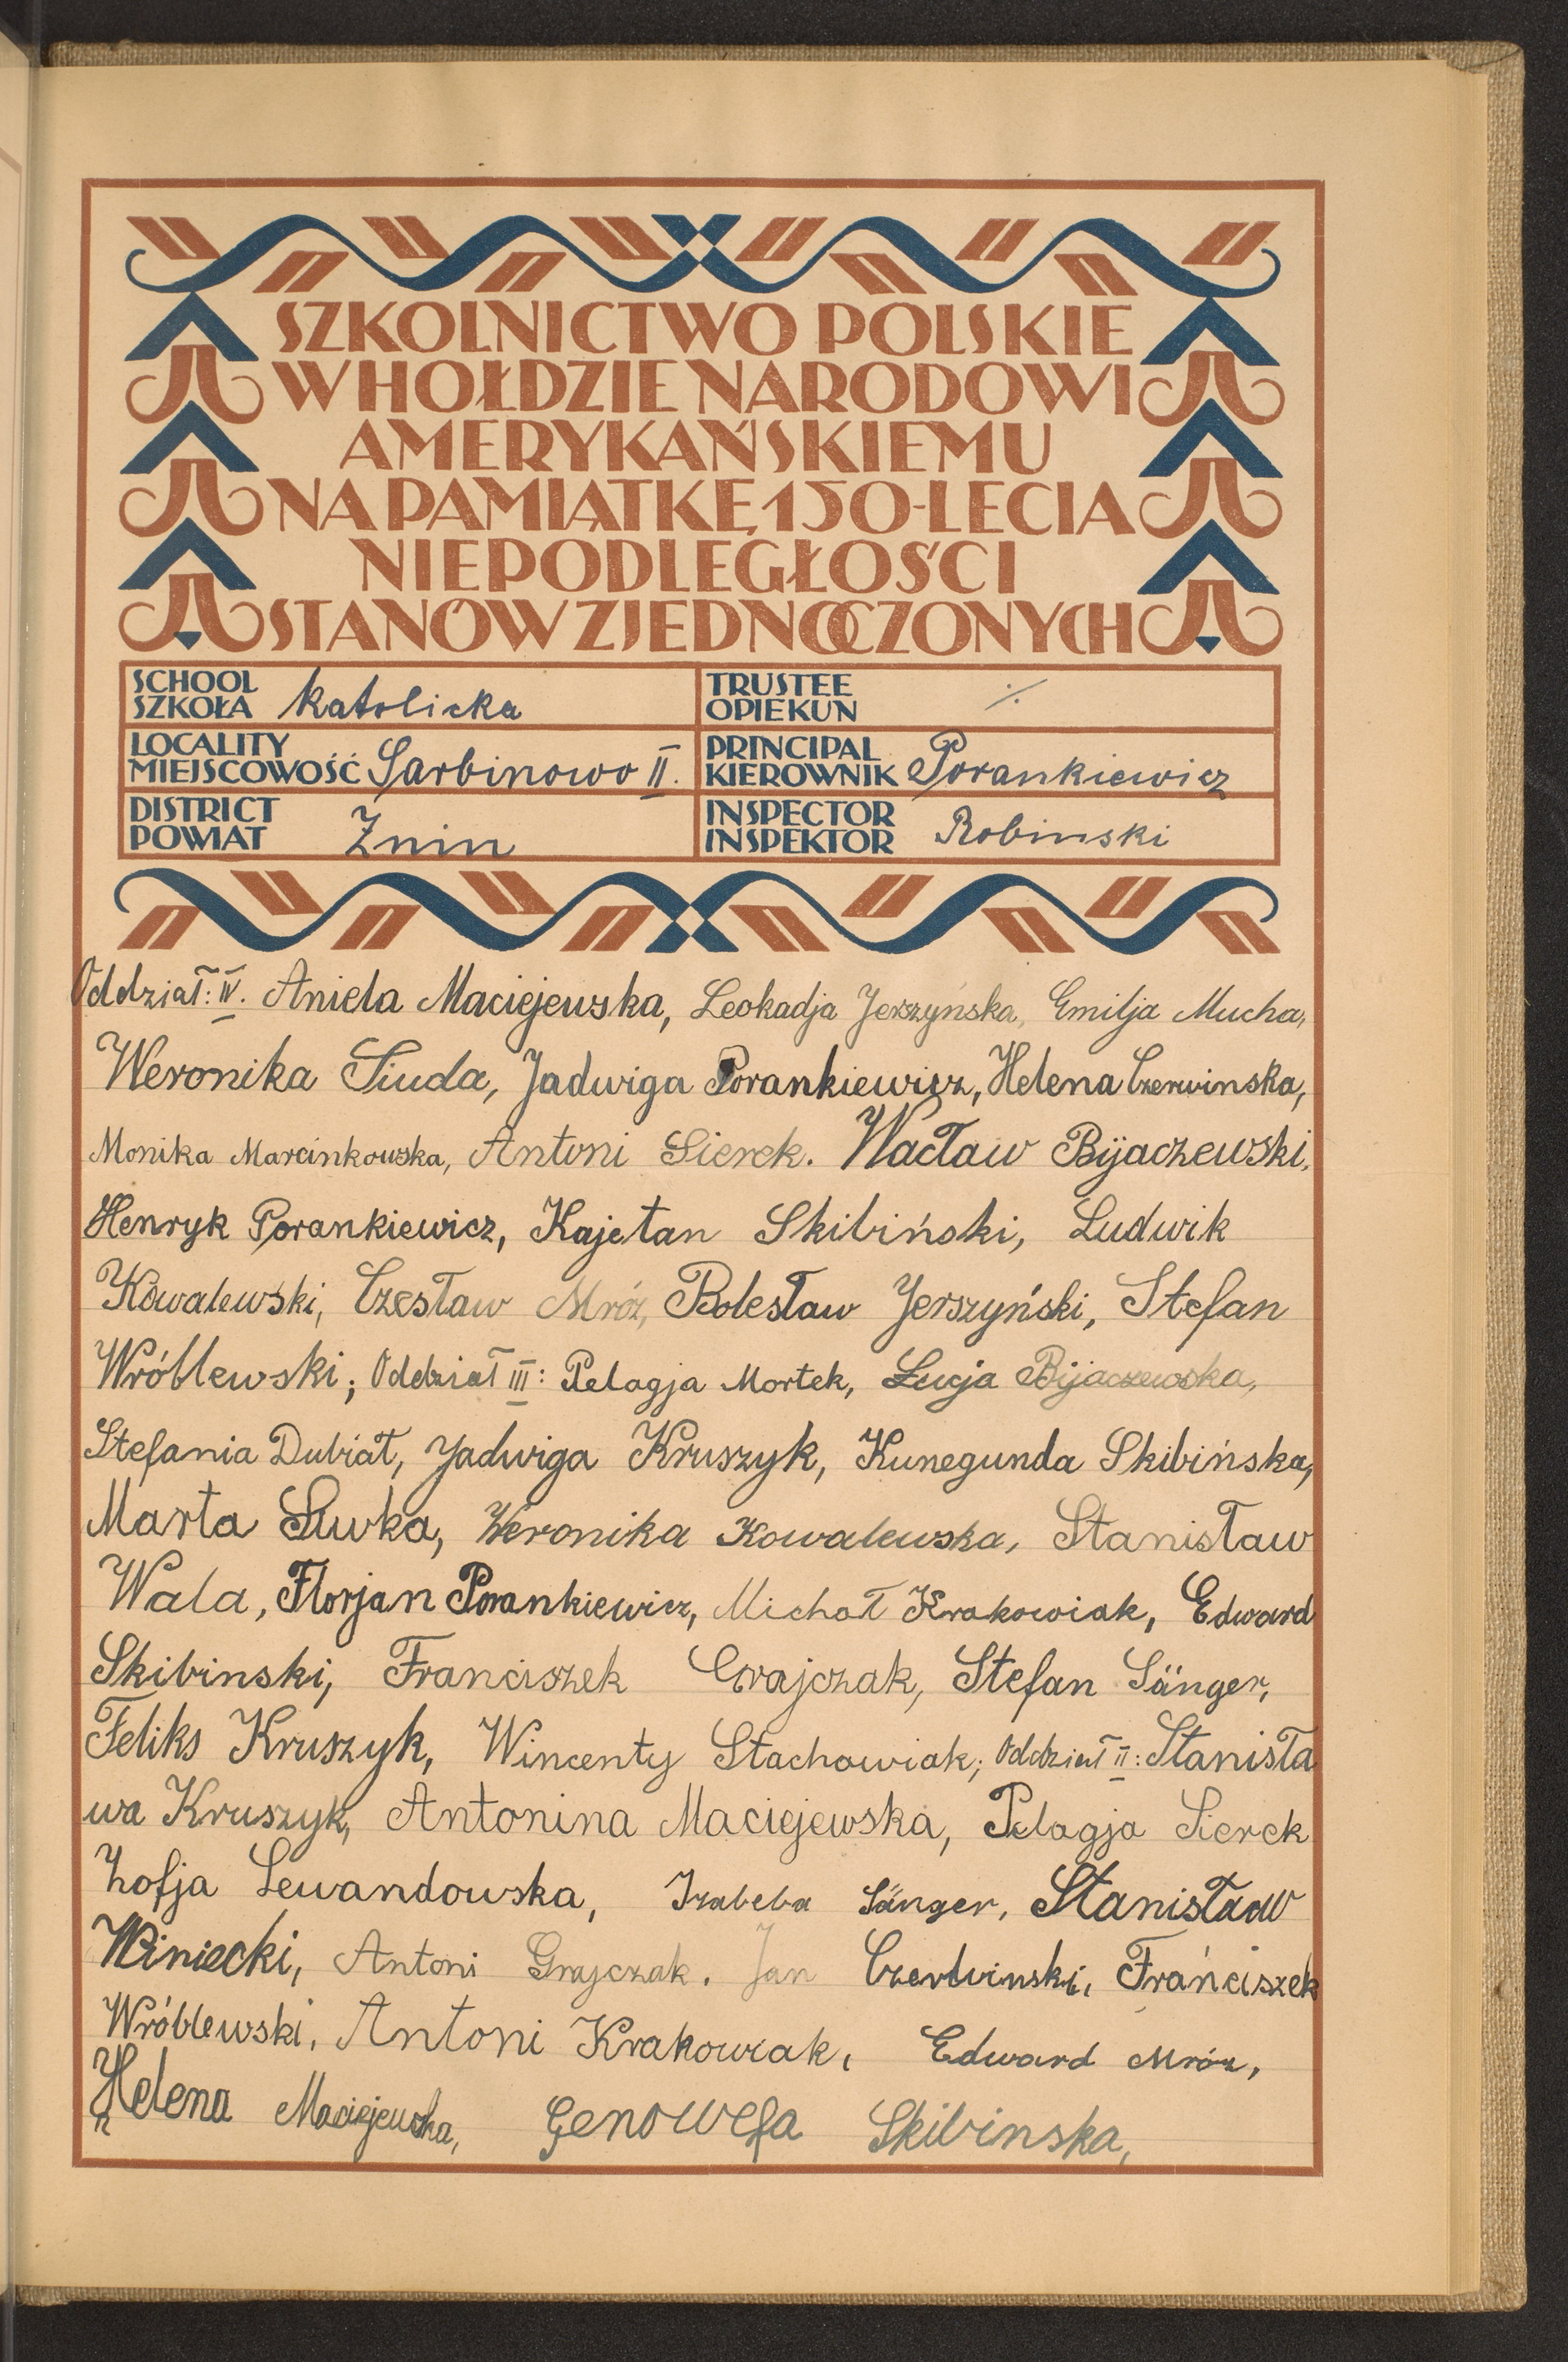 SZKOLNICTWO POLSKIE
W HOŁDZIE NARODOWI
AMERYKAŃSKIEMU
NA PAMIĄTKĘ 150-LECIA
NIEPODLEGŁOŚCI
STANÓW ZJEDNOCZONYCH
SCHOOL
SZKOŁA Katolicka
TRUSTEE
OPIEKUN ·/·
LOCALITY
MIEJSCOWOŚĆ Sarbinowo II.
PRINCIPAL
KIEROWNIK Porankiewicz
DISTRICT
POWIAT Żnin
INSPECTOR
INSPEKTOR Robinski
Oddział: IV. Aniela Maciejewska, Leokadja Jerszyńska, Emilja Mucha,
Weronika Siuda, Jadwiga Porankiewicz, Helena Czerwinska,
Monika Marcinkowska, Antoni Sierek. Wacław Bijaczewski,
Henryk Porankiewicz, Kajetan Skibiński, Ludwik
Kowalewski, Czesław Mróz, Bolesław Jerszyński, Stefan
Wróblewski; Oddział III: Pelagja Mortek, Łucja Bijaczewska,
Stefania Dubiał, Jadwiga Kruszyk, Kunegunda Skibińska,
Marta Śliwka, Weronika Kowalewska, Stanisław
Wala, Florjan Porankiewicz, Michał Krakowiak, Edward
Skibinski, Franciszek Grajczak, Stefan Sänger,
Feliks Kruszyk, Wincenty Stachowiak; Oddział II: Stanisła
wa Kruszyk, Antonina Maciejewska, Pelagja Sierek
Zofja Lewandowska, Izabela Sänger, Stanisław
Winiecki, Antoni Grajczak. Jan Czerwinski, Franciszek
Wróblewski, Antoni Krakowiak, Edward Mróz,
Helena Maciejewska, Genowefa Skibinska,